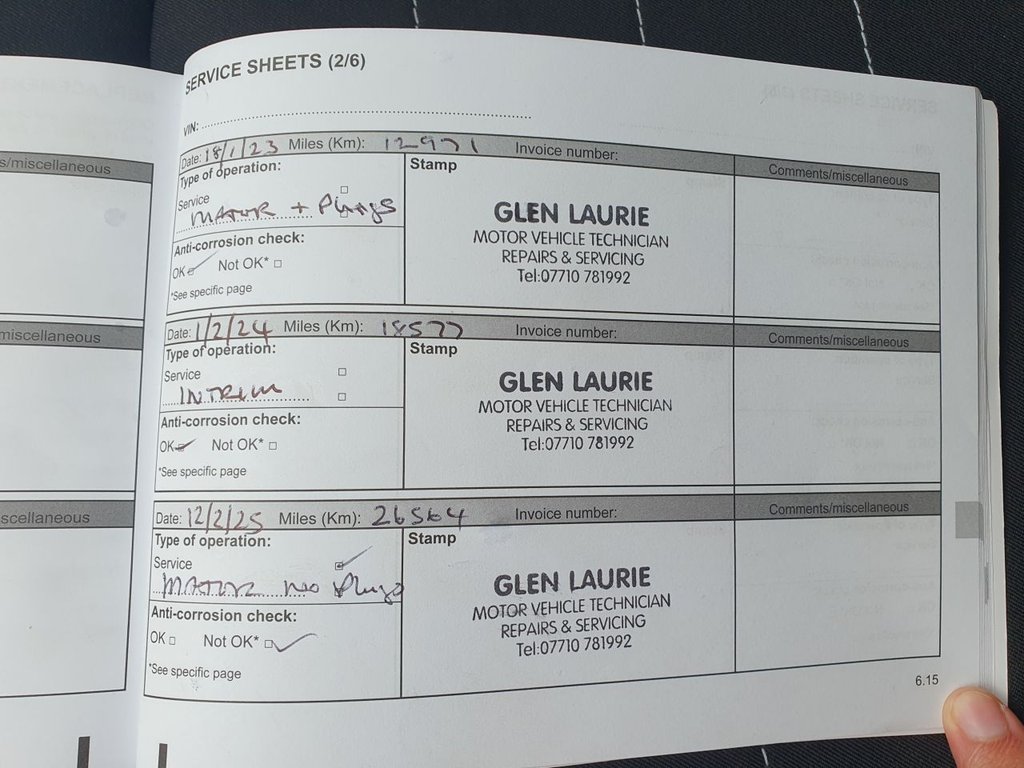 SERVICE SHEETS (2/6)
VIN:
s/miscellaneous
Date: 18/1/23 Miles (Km): 12971 Invoice number:
Type of operation:
Service
MATOR + Plugs
Anti-corrosion check:
OK Not OK*
*See specific page
Stamp
GLEN LAURIE
MOTOR VEHICLE TECHNICIAN
REPAIRS & SERVICING
Tel:07710 781992
Comments/miscellaneous
miscellaneous
Date: 1/2/24 Miles (Km): 18577 Invoice number:
Type of operation:
Service
INTRIM
Anti-corrosion check:
OK Not OK*
*See specific page
Stamp
GLEN LAURIE
MOTOR VEHICLE TECHNICIAN
REPAIRS & SERVICING
Tel:07710 781992
Comments/miscellaneous
scellaneous
Date: 12/2/25 Miles (Km): 26564 Invoice number:
Type of operation:
Service
MATOR no Plugs
Anti-corrosion check:
OK Not OK*
*See specific page
Stamp
GLEN LAURIE
MOTOR VEHICLE TECHNICIAN
REPAIRS & SERVICING
Tel:07710 781992
Comments/miscellaneous
6.15